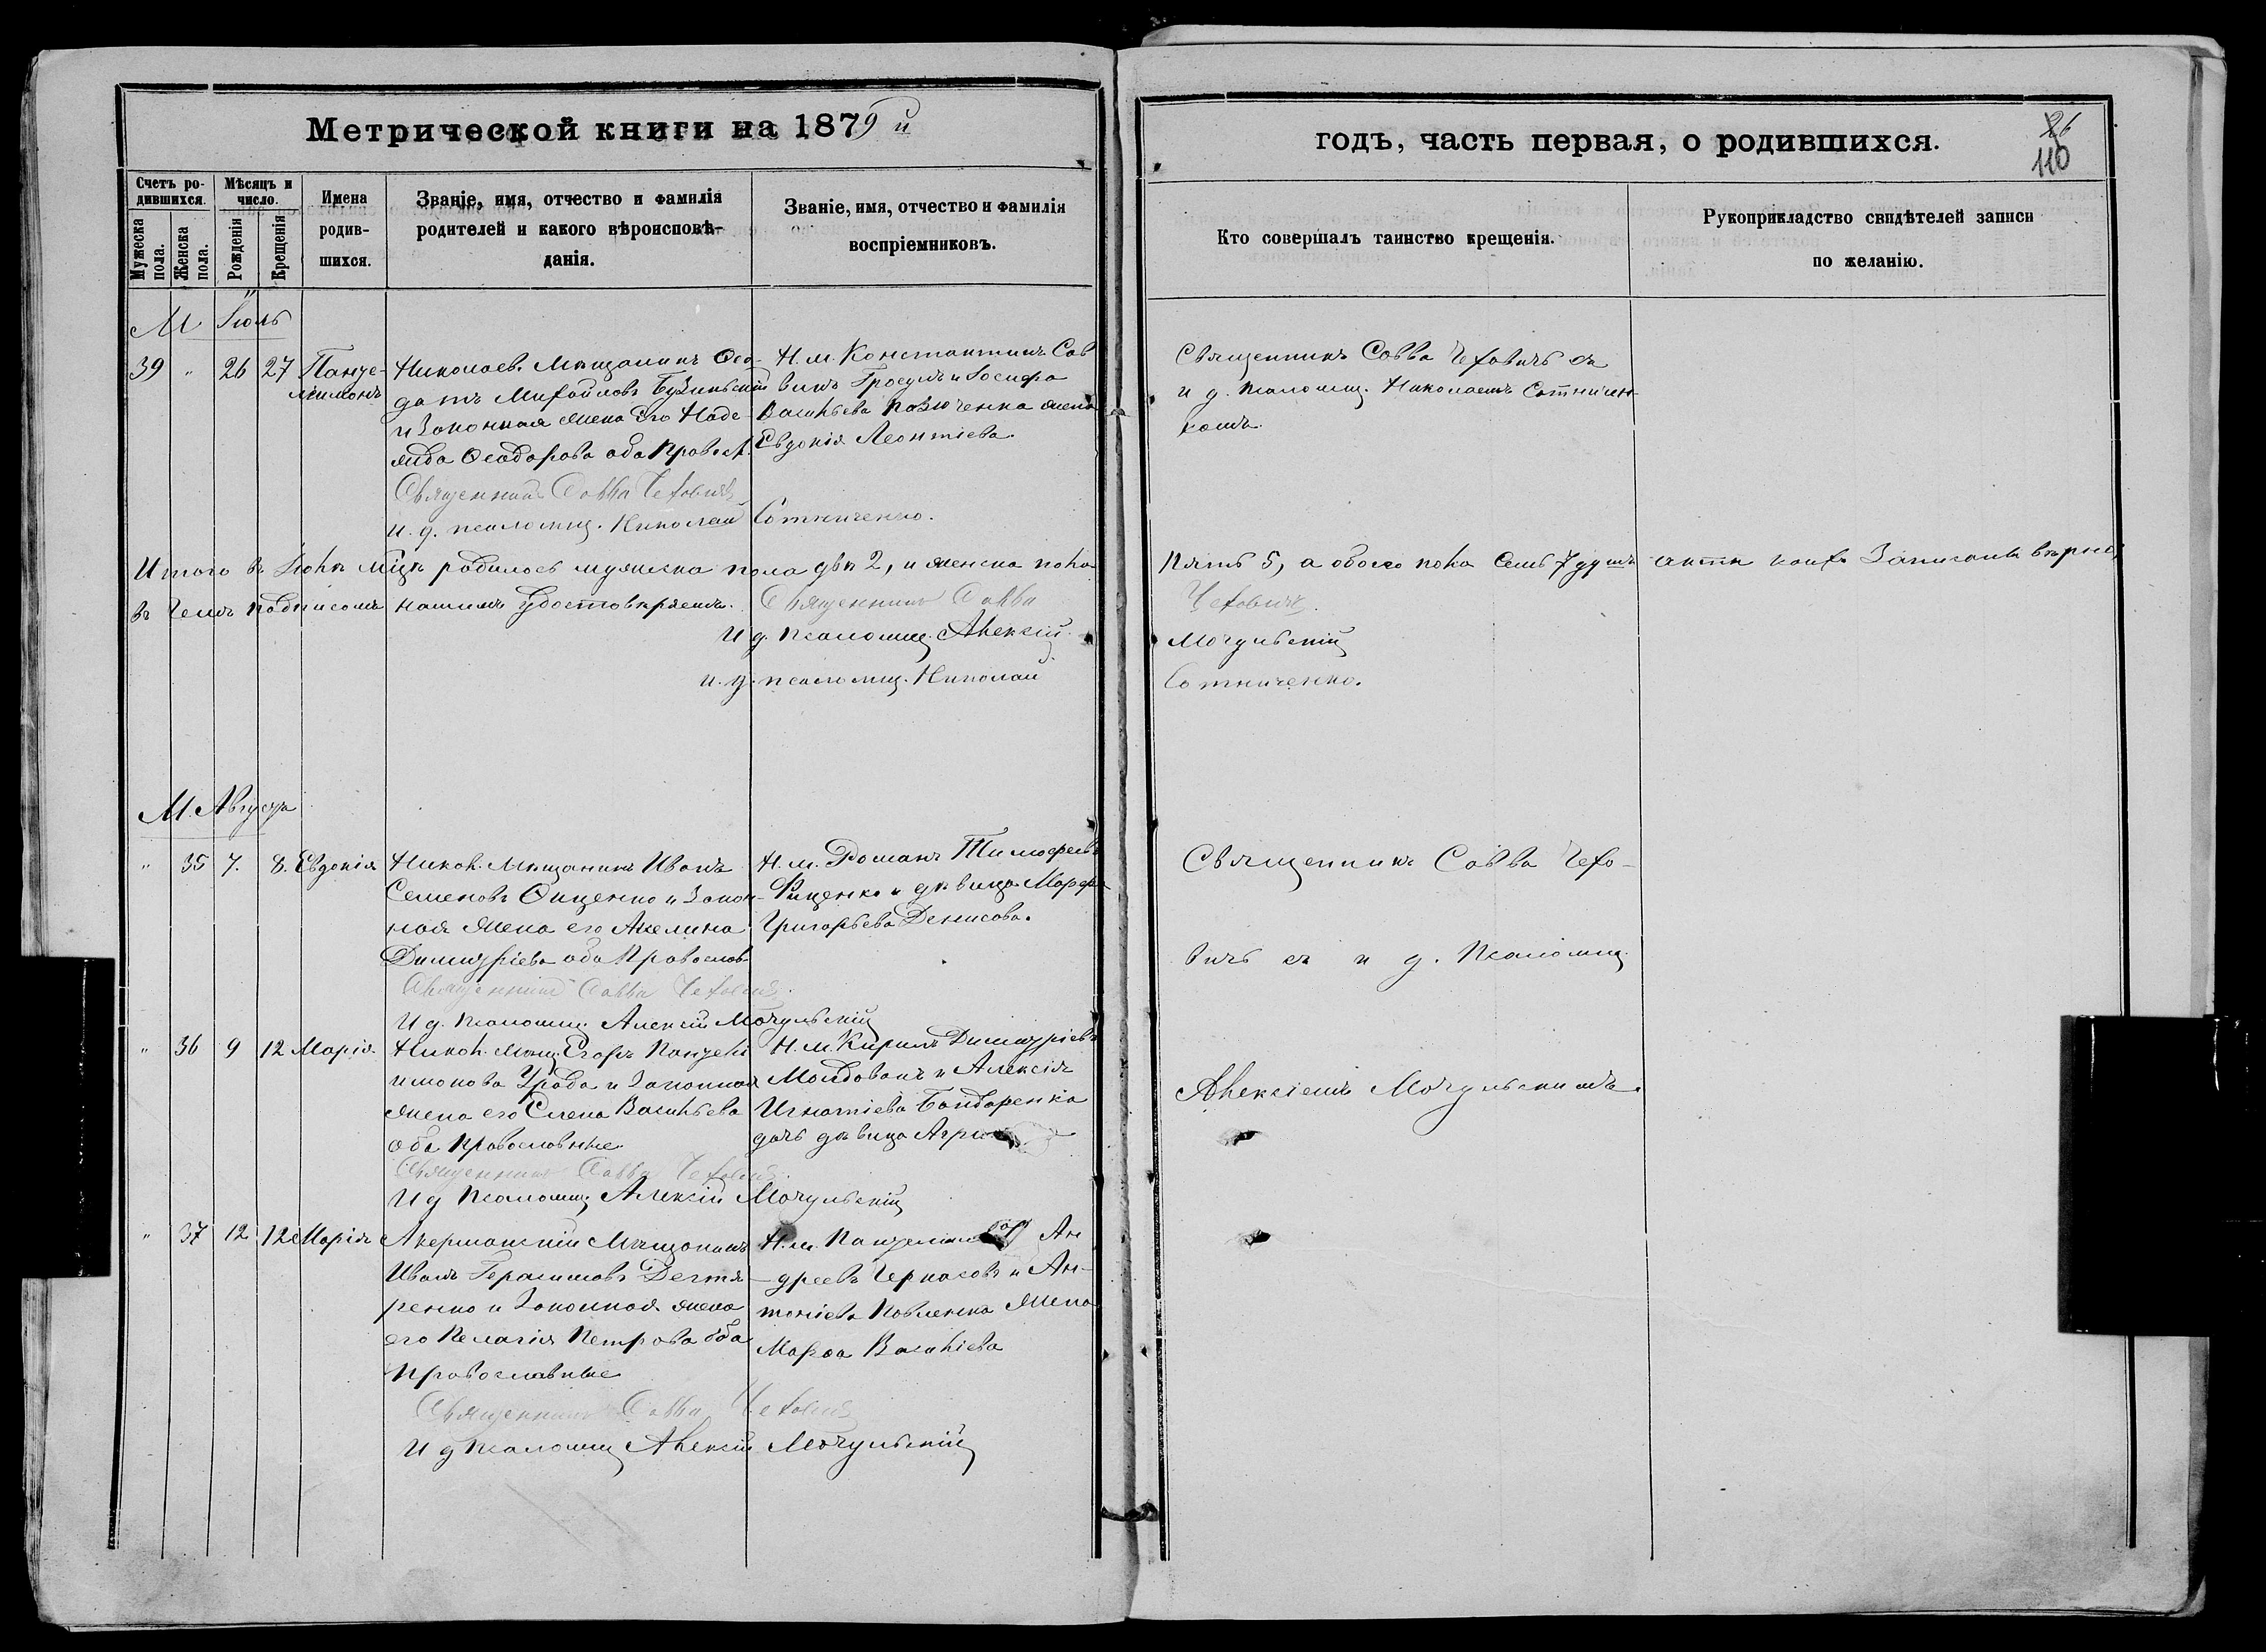 Метрической книги на 1879 й
годъ, часть первая, о родившихся.
86
110
Счетъ родившихся.
Мужеска пола.
Женска пола.
Мѣсяцъ и число.
Рожденія
Крещенія
Имена родившихся.
Званіе, имя, отчество и фамилія
родителей и какого вѣроисповѣ-
данія.
Званіе, имя, отчество и фамилія
воспріемниковъ.
Кто совершалъ таинство крещенія.
Рукоприкладство свидѣтелей записи
по желанію.
М Іюль
39 " 26 27 Панте-
лимонъ
Николаев. Мѣщанинъ Ѳео-
дотъ Михайловъ
и Законная жена Его Наде-
жда Ѳеодорова оба Правосл.
Священникъ Савва Чехович
и. д. псаломщ. Николай Сотниченко.
Н. м. Константинъ Сав
винъ и Іосифа
Васильева жена
Евдокія Леонтіева.
Священникъ Савва Чеховичъ съ
и д. псаломщ. Николаемъ Сотничен-
комъ.
Итого въ Іюлѣ мцѣ родилось мужеска пола два 2, и женска пола пять 5, а обоего пола семь 7 душъ акты коихъ Записаны вѣрно,
въ чемъ подписомъ нашимъ удостовѣряемъ. Священникъ Савва Чехович.
И д. псаломщ. Алексій Мочульскій
и. д. псаломщ. Николай Сотниченко.
М. Августа
" 35 7. 8. Евдокія
Никол. Мѣщанинъ Иванъ
Семеновъ Онценко и Закон-
ная жена его Акелина
Димитріева оба Православ.
Священникъ Савва Чехович.
И д. псаломщ. Алексій Мочульскій
Н. м. Романъ Тимофеевъ
и дѣвица Марфа
Григорьева Денисова.
Священникъ Савва Чехо-
вичъ съ и д. Псаломщ.
Алексіемъ Мочульскимъ.
" 36 9 12 Марія.
Никол. мѣщ. Егоръ Пантели
имонова и законная
жена его Елена Васильева
оба Православные.
Священникъ Савва Чехович.
И д псаломщ Алексій Мочульскій
Н. м. Кирилъ Димитріевъ
Молдованъ и Алексія
Игнатіева Бондаренка
дочь дѣвица
" 37 12 12 Марія
Акерманскій Мѣщанинъ
Иванъ Герасимовъ Дегтя-
ренко и Законная жена
его Пелагія Петрова оба
Православные
Священникъ Савва Чехович
И д псаломщ Алексій Мочульскій
Н. м. Ан
-дреевъ Черкасовъ и Ан-
тоніева Павленка жена
Марѳа Василіева